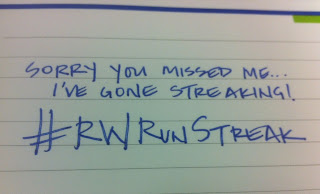 SORRY YOU MISSED ME...
I'VE GONE STREAKING!
#RWRUNSTREAK